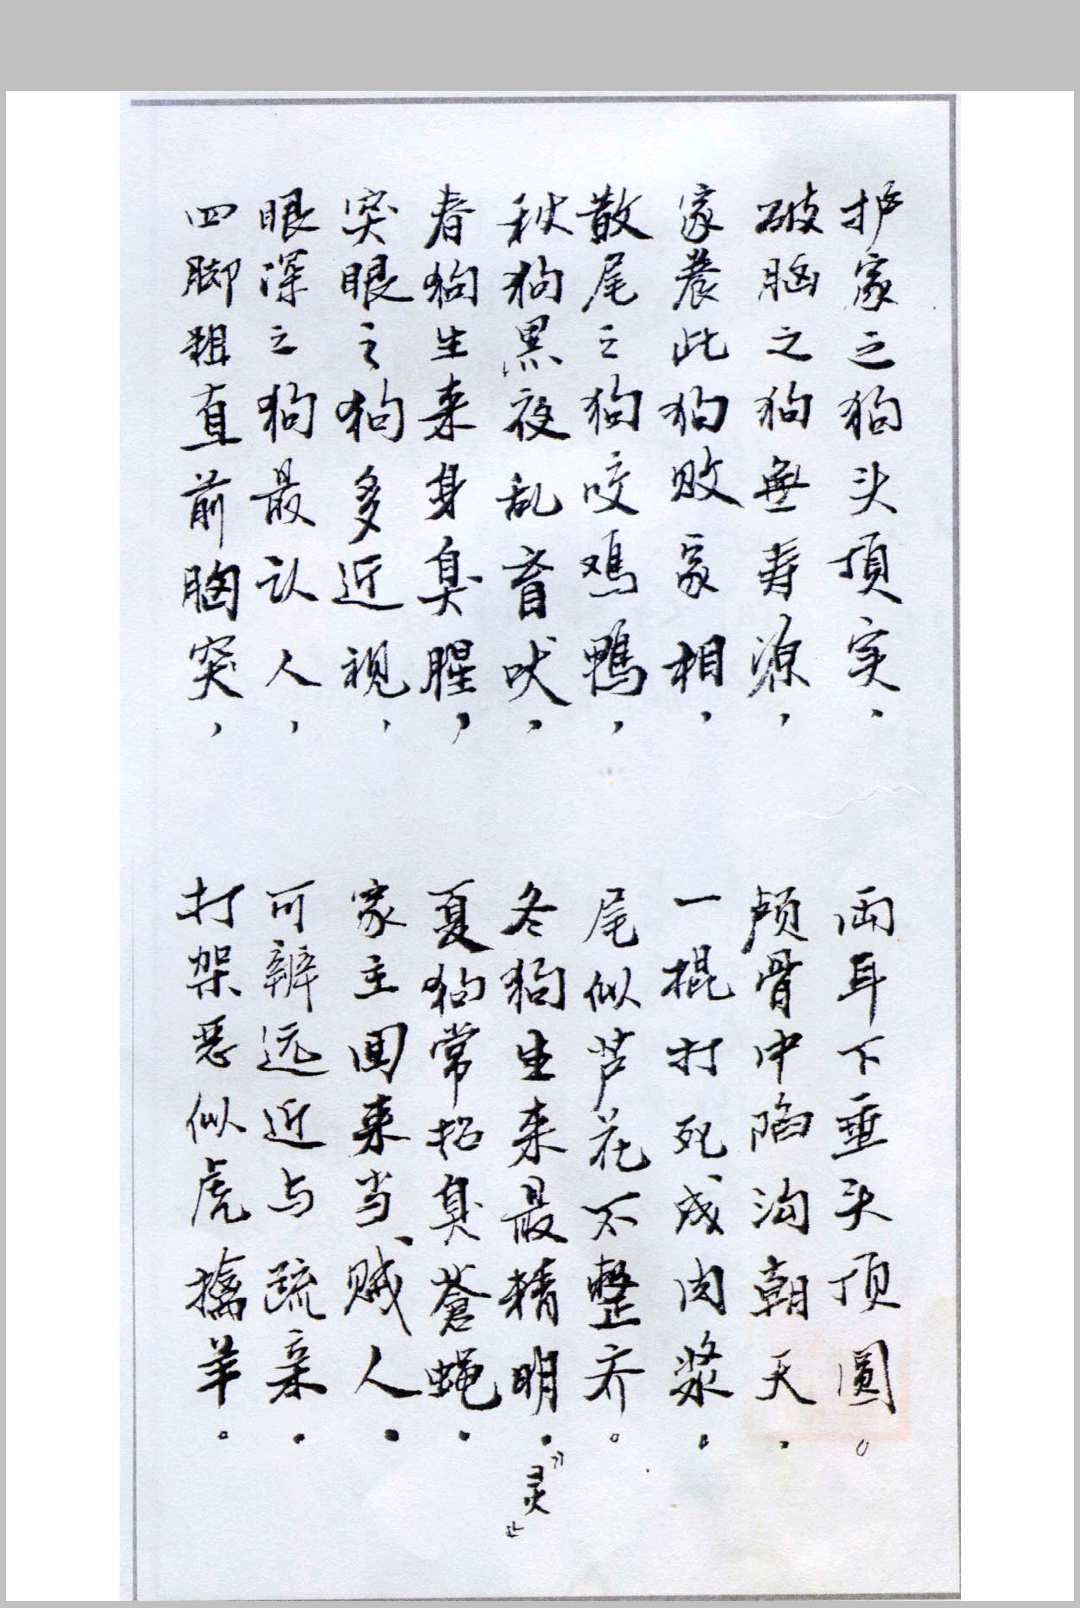 护家之狗头顶实，两耳下垂头顶圆。
破脑之狗無寿源，颅骨中陷沟朝天。
家养此狗败家相，一棍打死成肉浆。
散尾之狗咬鸡鸭，尾似芦花不整齐。
秋狗黑夜乱盲吠，冬狗生来最精明。“灵”
春狗生来身臭腥，夏狗常招臭蒼蝇。
突眼之狗多近视，家主回来当贼人。
眼深之狗最认人，可辨远近与疏亲。
四脚粗直前胸突，打架恶似虎擒羊。